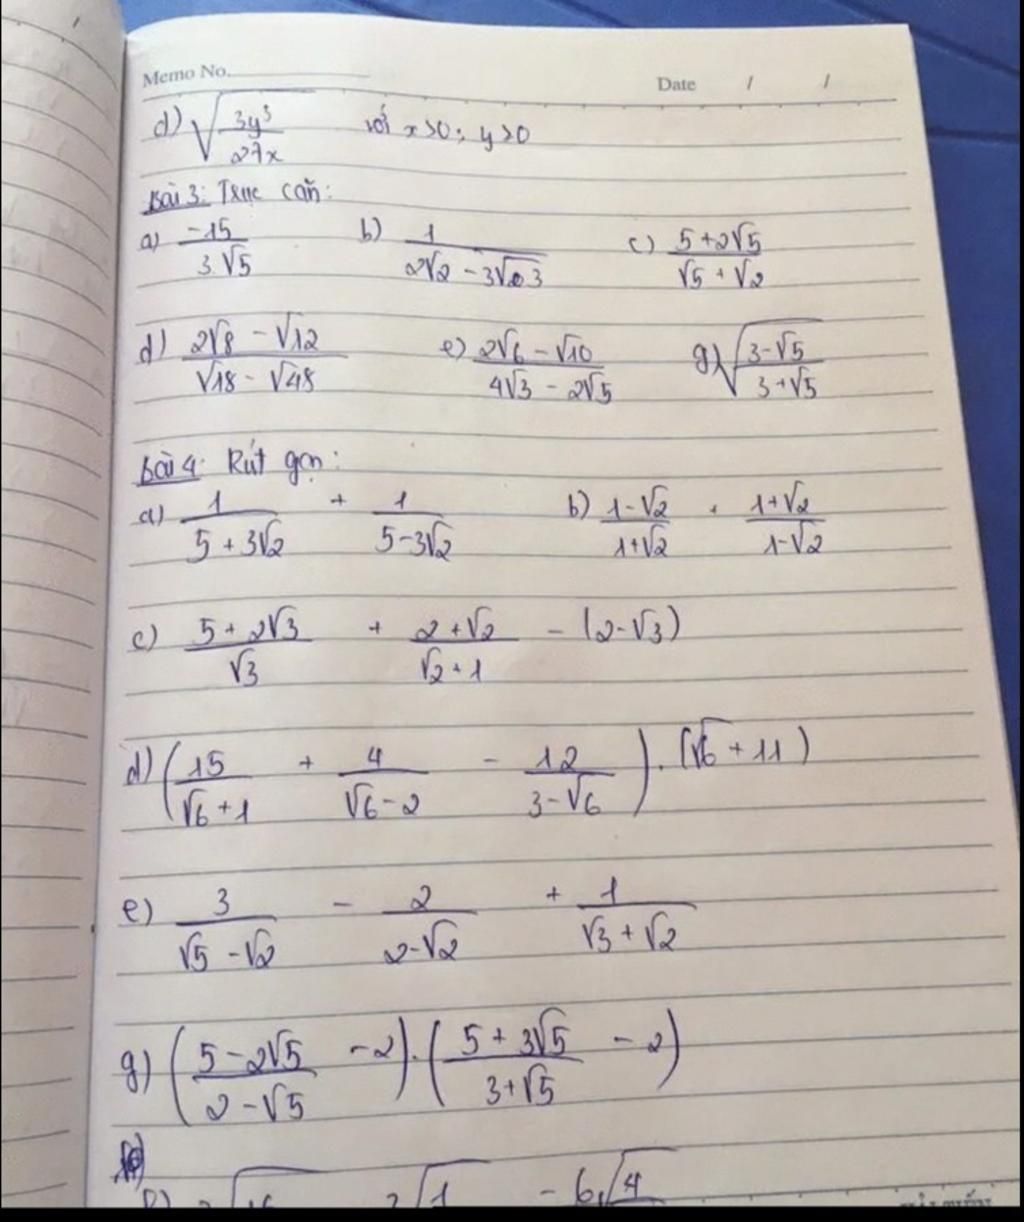 Memo No. Date / /
d) √(3y³/27x) với x>0; y>0
Bài 3: Trục căn:
a) -15/(3.√5) b) 1/(2√2 - 3√3) c) (5+2√5)/(√5+√2)
d) (2√8 - √12)/(√18 - √48) e) (2√6 - √10)/(4√3 - 2√5) g) √((3-√5)/(3+√5))
Bài 4: Rút gọn:
a) 1/(5+3√2) + 1/(5-3√2) b) (1-√2)/(1+√2) + (1+√2)/(1-√2)
c) (5+2√3)/√3 + (2+√2)/(√2+1) - (2-√3)
d) (15/(√6+1) + 4/(√6-2) - 12/(3-√6)).(√6+11)
e) 3/(√5-√2) - 2/(2-√2) + 1/(√3+√2)
g) ((5-2√5)/(2-√5) - 2).((5+3√5)/(3+√5) - 2)